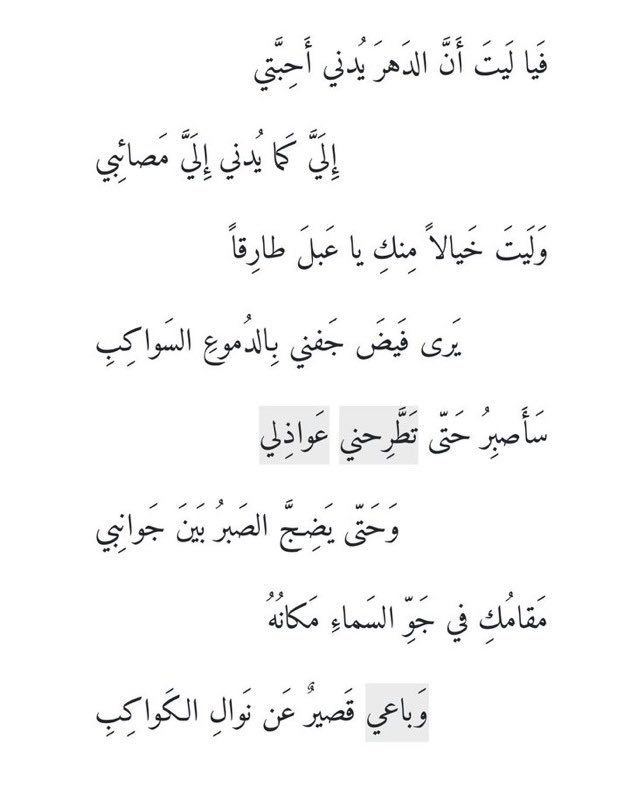 فَيا لَيتَ أَنَّ الدَهرَ يُدني أَحِبَّتي
إِلَيَّ كَما يُدني إِلَيَّ مَصائِبي
وَلَيتَ خَيالاً مِنكِ يا عَبلَ طارِقاً
يَرى فَيضَ جَفني بِالدُموعِ السَواكِبِ
سَأَصبِرُ حَتّى تَطَّرِحني عَواذِلي
وَحَتّى يَضِجَّ الصَبرُ بَينَ جَوانِبي
مَقامُكِ في جَوِّ السَماءِ مَكانُهُ
وَباعي قَصيرٌ عَن نَوالِ الكَواكِبِ